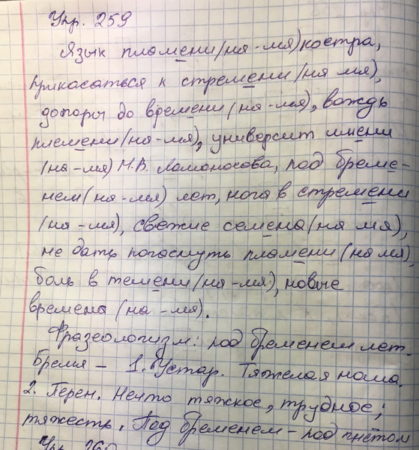 Упр. 259
Язык пламени (на -мя) костра,
прикасаться к стремени (на мя),
допоры до времени (на -мя), вождь
племени (на -мя), университ имени
(на -мя) М.В. Ломоносова, под бреме-
нем (на -мя) лет, нога в стремени
(на -мя), свежие семена (на мя),
не дать погаснуть пламени (на мя)
боль в темени (на -мя), новые
времена (на -мя).
Фразеологизм: под бременем лет.
Бремя – 1. Устар. Тяжелая ноша.
2. Перен. Нечто тяжкое, трудное;
тяжесть. Под бременем – под гнётом
Упр. 260